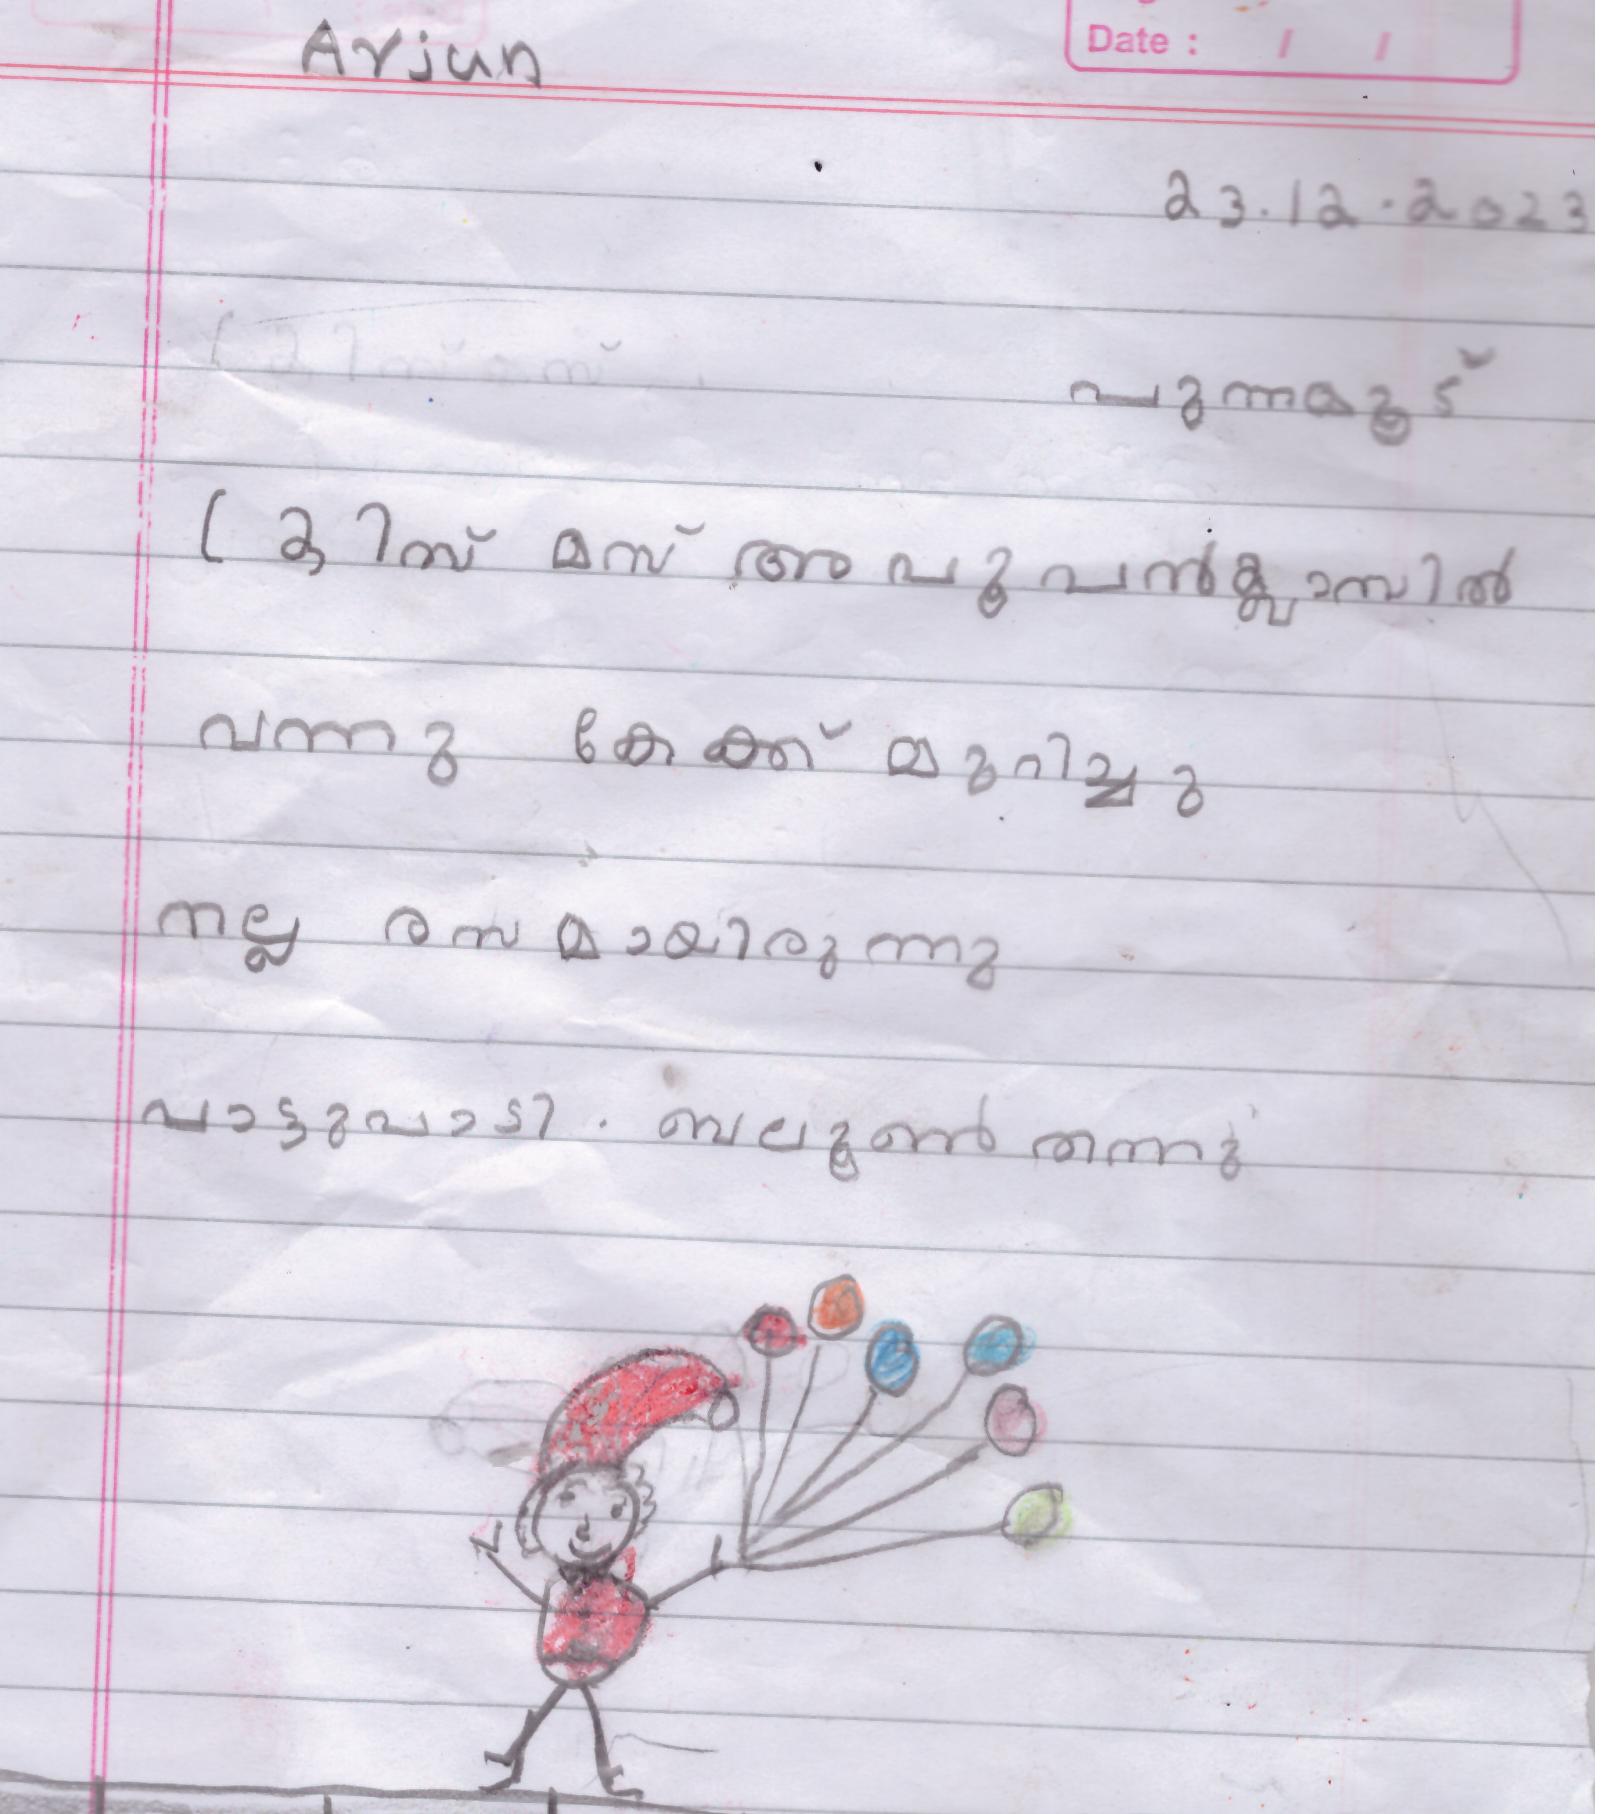 Arjun
Date : / /
23.12.2023
പുന്നമൂട്
ക്രിസ് മസ് അപ്പൂപ്പൻ ക്ലാസിൽ
വന്നു കേക്ക് മുറിച്ചു
നല്ല രസമായിരുന്നു
പാട്ടുപാടി. ബലൂൺ തന്നു